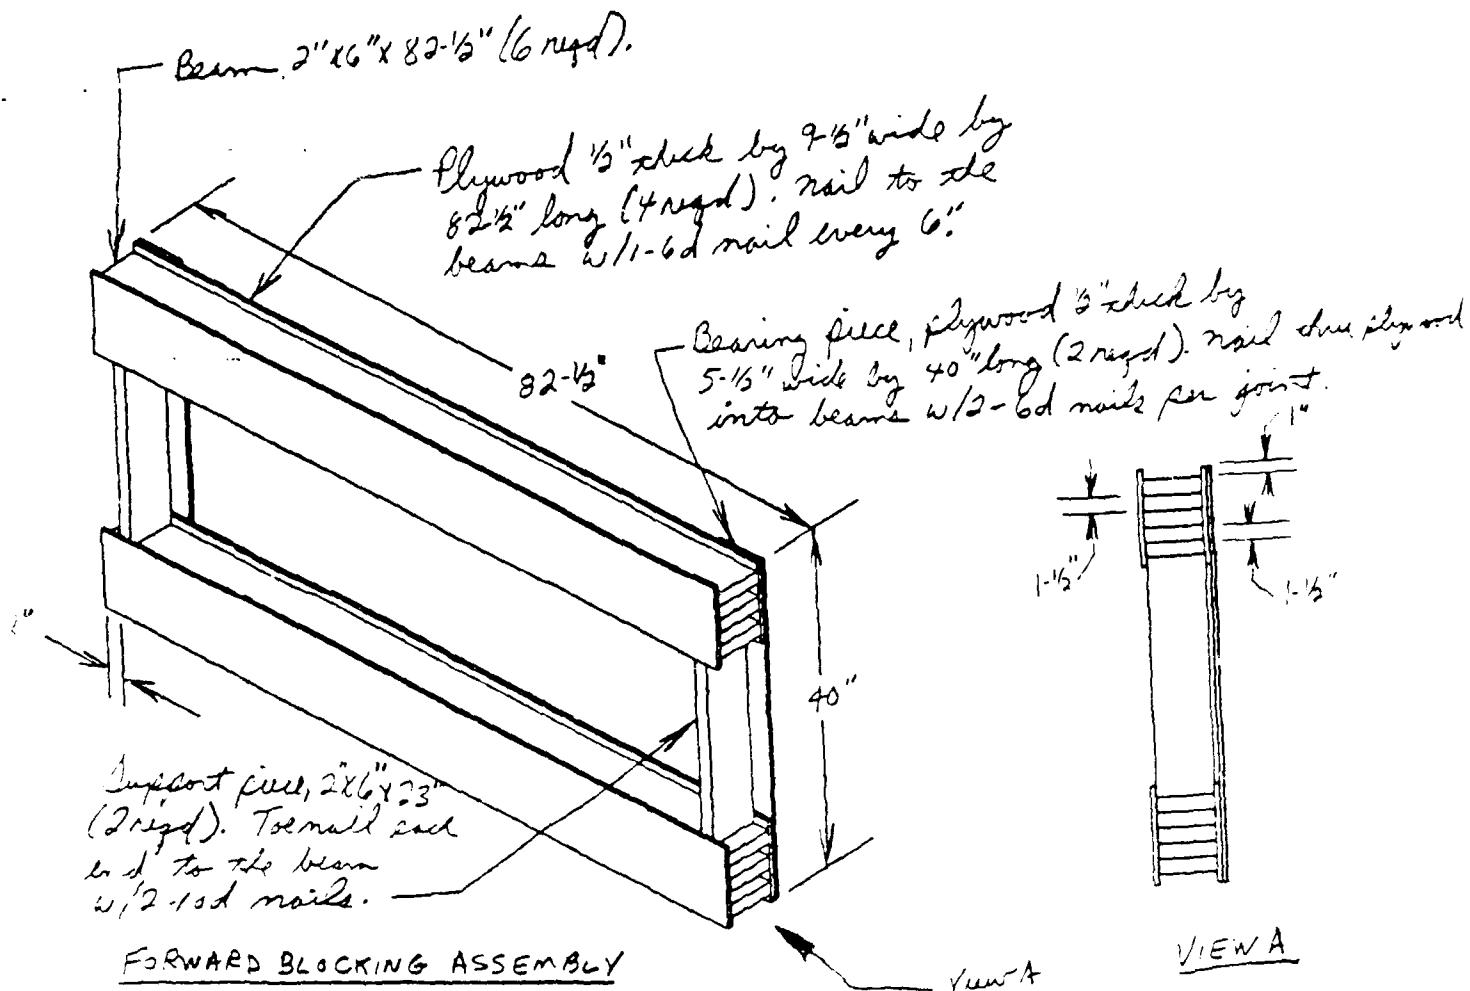 Beam 2"x6"x 82-1/2" (6 reqd).
Plywood 1/2" thick by 9-1/2" wide by
82-1/2" long (4 reqd). Nail to the
beams w/1-6d nail every 6".
Bearing piece, plywood 1/2" thick by
5-1/2" wide by 40" long (2 reqd). Nail thru plywood
into beams w/2-6d nails per joint.
82-1/2"
1"
1-1/2"
1-1/2"
40"
Support piece, 2"x6"x23"
(2 reqd). Toenail each
end to the beam
w/2-10d nails.
FORWARD BLOCKING ASSEMBLY
View A
VIEW A